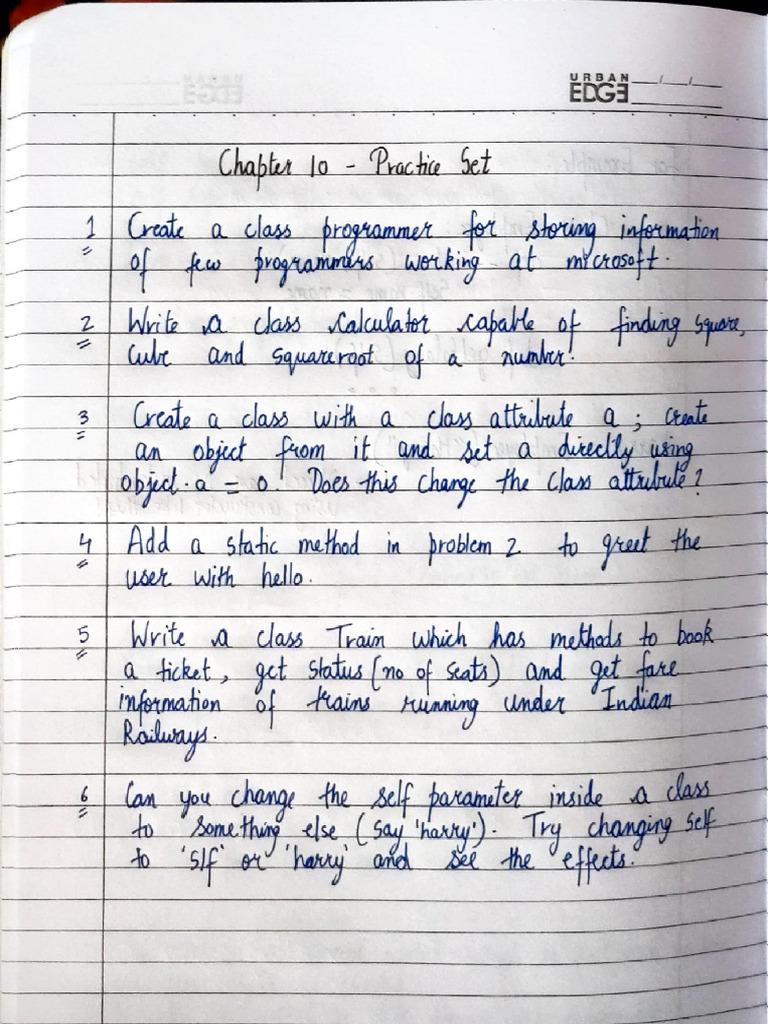 URBAN
EDGE
Chapter 10 - Practice Set
1 Create a class programmer for storing information
of few programmers working at microsoft.
2 Write a class calculator capable of finding square,
Cube and squareroot of a number.
3 Create a class with a class attribute a; create
an object from it and set a directly using
object.a = 0. Does this change the class attribute?
4 Add a static method in problem 2 to greet the
user with hello.
5 Write a class Train which has methods to book
a ticket, get status (no of seats) and get fare
information of trains running under Indian
Railways.
6 Can you change the self parameter inside a class
to something else (say 'harry'). Try changing self
to 'slf' or 'harry' and see the effects.